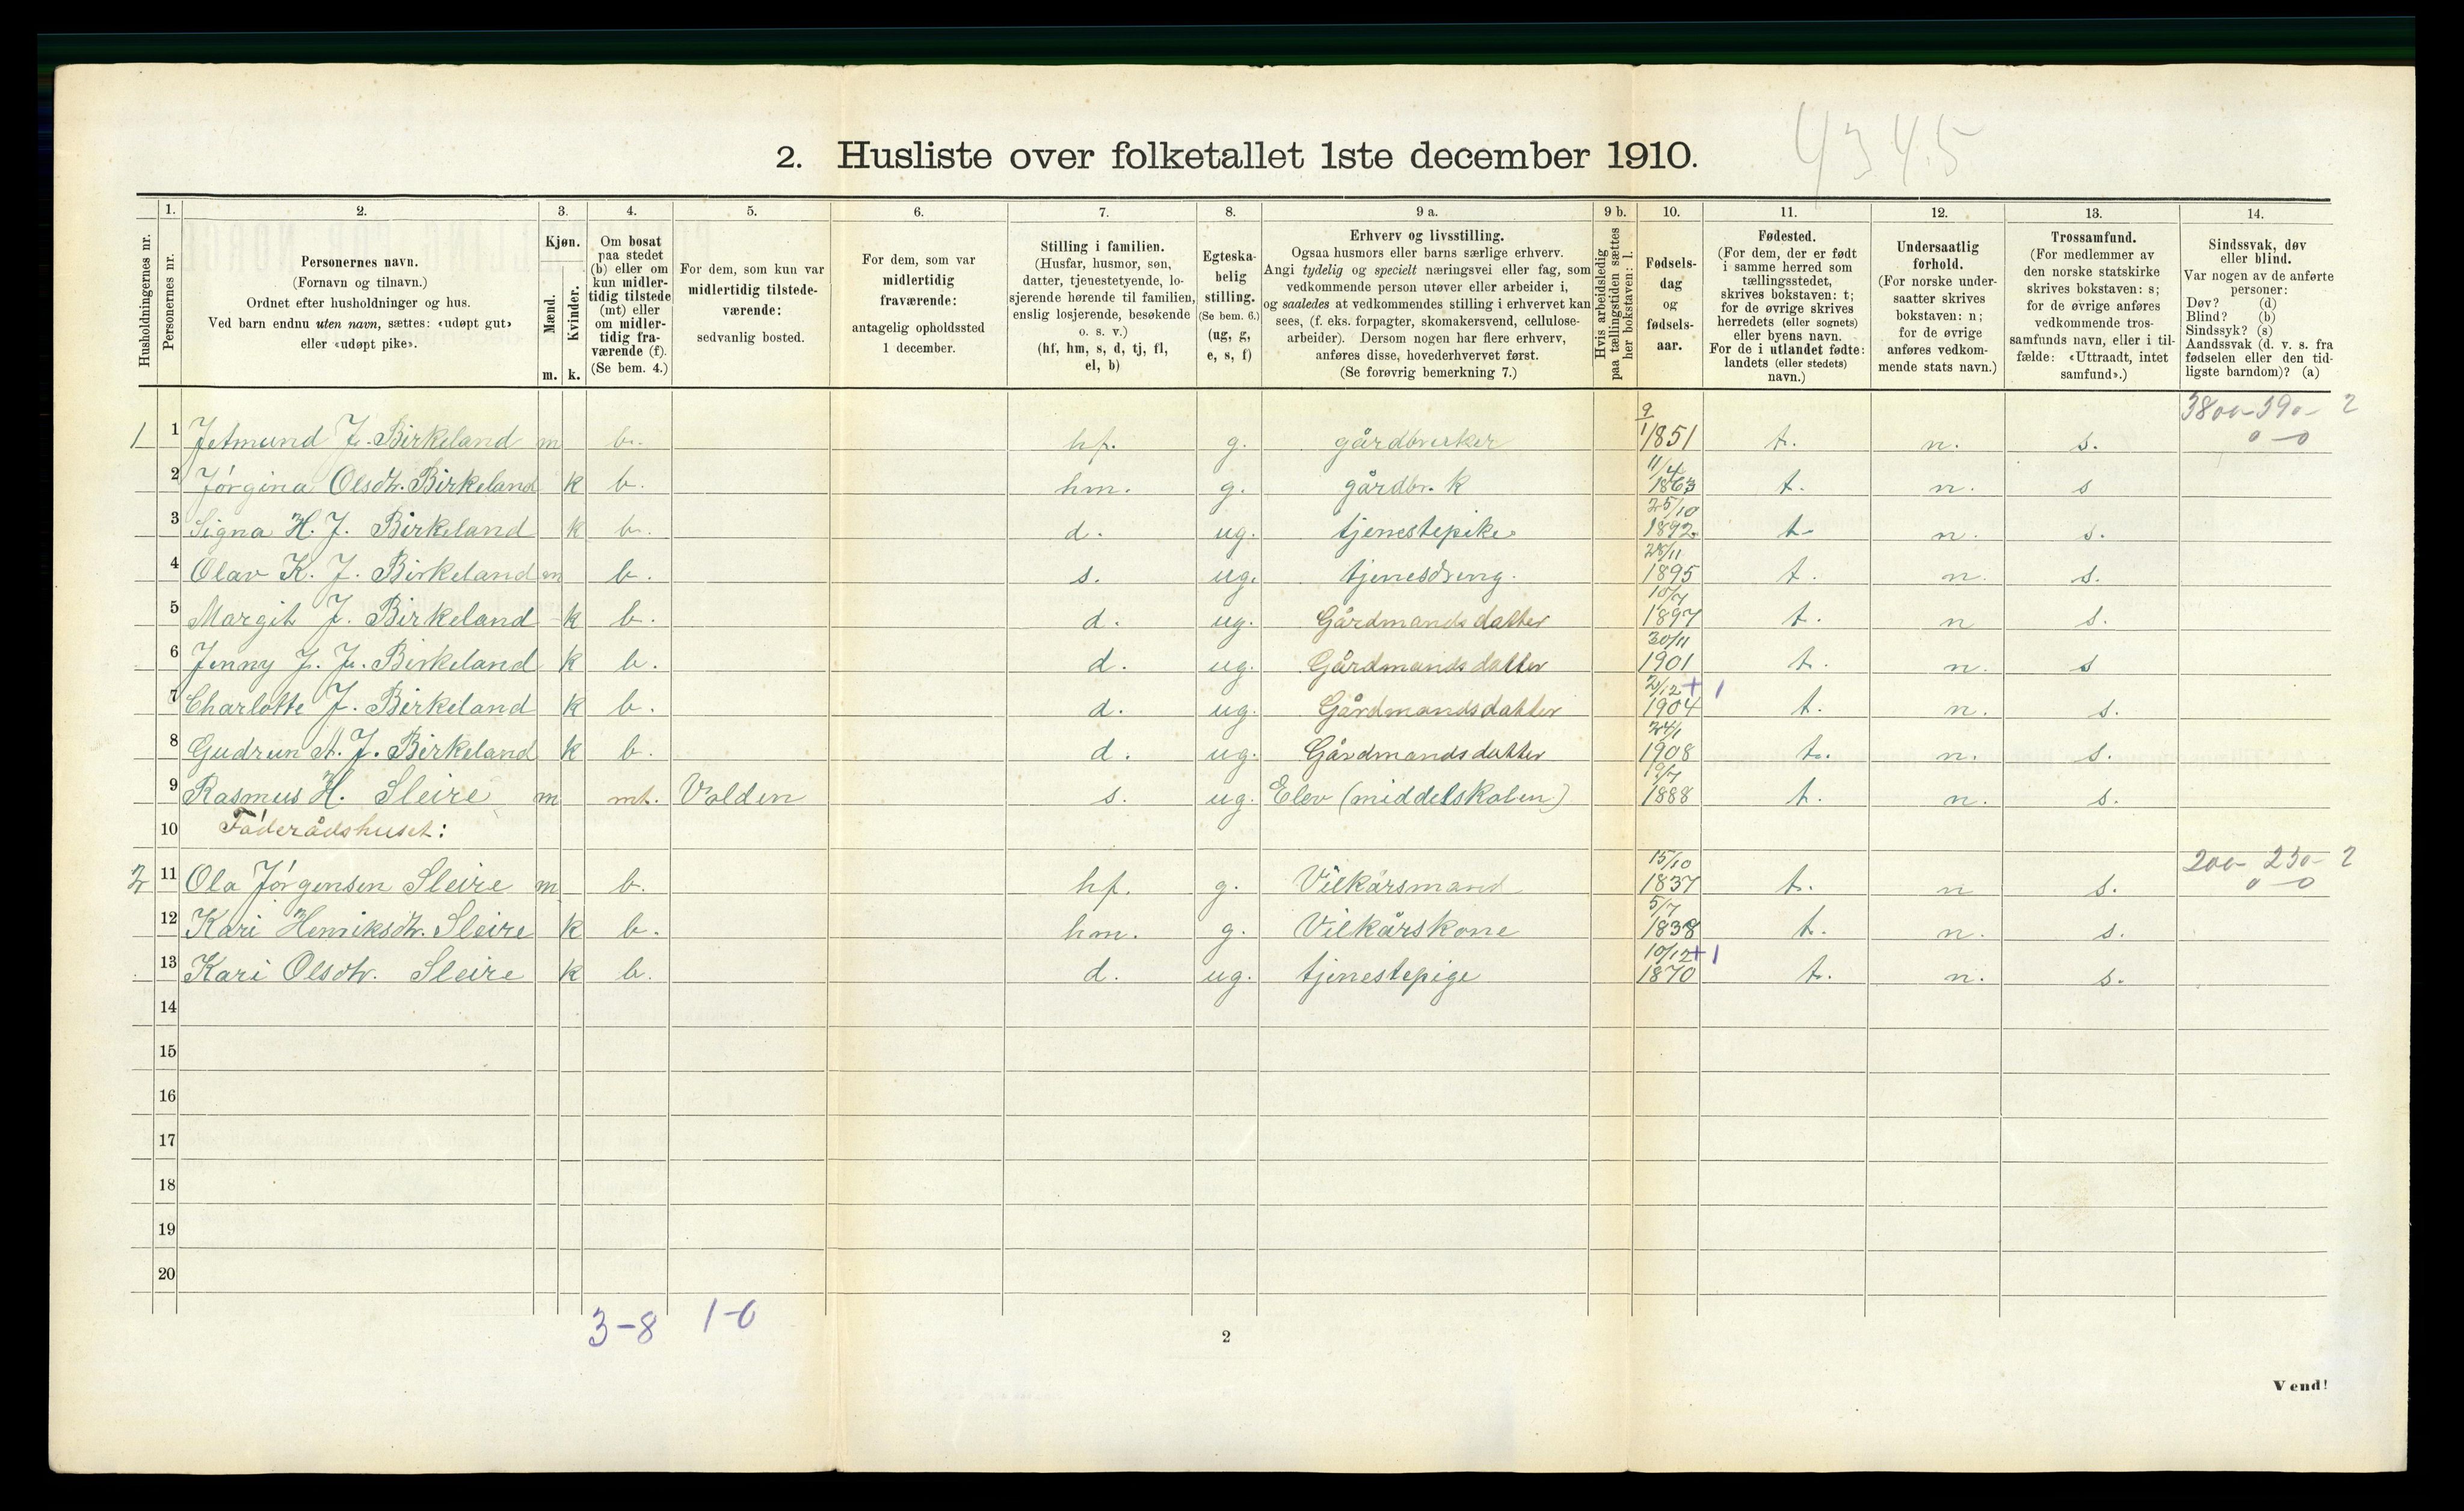 4345
2. Husliste over folketallet 1ste december 1910.
Husholdningernes nr.
1.
Personernes nr.
2.
Personernes navn.
(Fornavn og tilnavn.)
Ordnet efter husholdninger og hus.
Ved barn endnu uten navn, sættes: «udøpt gut»
eller «udøpt pike».
3.
Kjøn.
Mænd.
Kvinder.
m.
k.
4.
Om bosat
paa stedet
(b) eller om
kun midler-
tidig tilstede
(mt) eller
om midler-
tidig fra-
værende (f).
(Se bem. 4.)
5.
For dem, som kun var
midlertidig tilstede-
værende:
sedvanlig bosted.
6.
For dem, som var
midlertidig
fraværende:
antagelig opholdssted
1 december.
7.
Stilling i familien.
(Husfar, husmor, søn,
datter, tjenestetyende, lo-
sjerende hørende til familien,
enslig losjerende, besøkende
o. s. v.)
(hf, hm, s, d, tj, fl,
el, b)
8.
Egteska-
belig
stilling.
(Se bem. 6.)
(ug, g,
e, s, f)
9 a.
Erhverv og livsstilling.
Ogsaa husmors eller barns særlige erhverv.
Angi tydelig og specielt næringsvei eller fag, som
vedkommende person utøver eller arbeider i,
og saaledes at vedkommendes stilling i erhvervet kan
sees, (f. eks. forpagter, skomakersvend, cellulose-
arbeider). Dersom nogen har flere erhverv,
anføres disse, hovederhvervet først.
(Se forøvrig bemerkning 7.)
9 b.
Hvis arbeidsledig
paa tællingstiden sættes
her bokstaven: l.
10.
Fødsels-
dag
og
fødsels-
aar.
11.
Fødested.
(For dem, der er født
i samme herred som
tællingsstedet,
skrives bokstaven: t;
for de øvrige skrives
herredets (eller sognets)
eller byens navn.
For de i utlandet fødte:
landets (eller stedets)
navn.)
12.
Undersaatlig
forhold.
(For norske under-
saatter skrives
bokstaven: n;
for de øvrige
anføres vedkom-
mende stats navn.)
13.
Trossamfund.
(For medlemmer av
den norske statskirke
skrives bokstaven: s;
for de øvrige anføres
vedkommende tros-
samfunds navn, eller i til-
fælde: «Uttraadt, intet
samfund».)
14.
Sindssvak, døv
eller blind.
Var nogen av de anførte
personer:
Døv? (d)
Blind? (b)
Sindssyk? (s)
Aandssvak (d. v. s. fra
fødselen eller den tid-
ligste barndom)? (a)
1 1 Jetmund J. Birkeland m b. hf. g. gårdbruker 9/1 1851 t. n. s. 3800-390- 2 0-0
2 Jørgina Olsdtr. Birkeland k b. hm. g. gårdbr. k 11/4 1863 t. n. s
3 Signa H. J. Birkeland k b. d. ug. tjenestepike 25/10 1892 t n. s.
4 Olav K. J. Birkeland m b. s. ug. tjenesdreng. 28/11 1895 t. n. s.
5 Margit J. Birkeland k b. d. ug. Gårdmandsdatter 10/7 1897 t. n s.
6 Jenny J. J. Birkeland k b. d. ug. Gårdmandsdatter 30/11 1901 t. n. s
7 Charlotte J. Birkeland k b. d. ug. Gårdmandsdatter 2/12 + 1 1904 t. n. s.
8 Gudrun A. J. Birkeland k b. d. ug. Gårdmandsdatter 24/1 1908 t. n. s.
9 Rasmus H. Sleire m mt. Volden s. ug. Elev (middelskolen) 19/7 1888 t. n. s.
10 Føderådshuset:
2 11 Ola Jørgensen Sleire m b. hf. g. Vilkårsmand 15/10 1837 t. n s. 200- 250- 2 0-0
12 Kari Henriksdtr. Sleire k b. hm. g. Vilkårskone 5/7 1838 t. n. s.
13 Kari Olsdtr. Sleire k b. d. ug. tjenestepige 10/12 + 1 1870 t. n. s.
14
15
16
17
18
19
20
3-8 1-0
2
Vend!